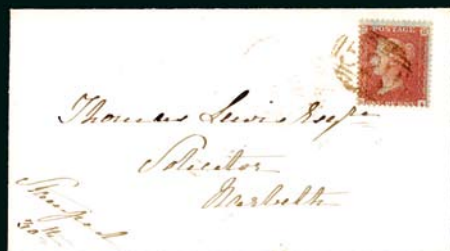 POSTAGE
Thomas Lewis Esqre
Solicitor
Narberth
30th